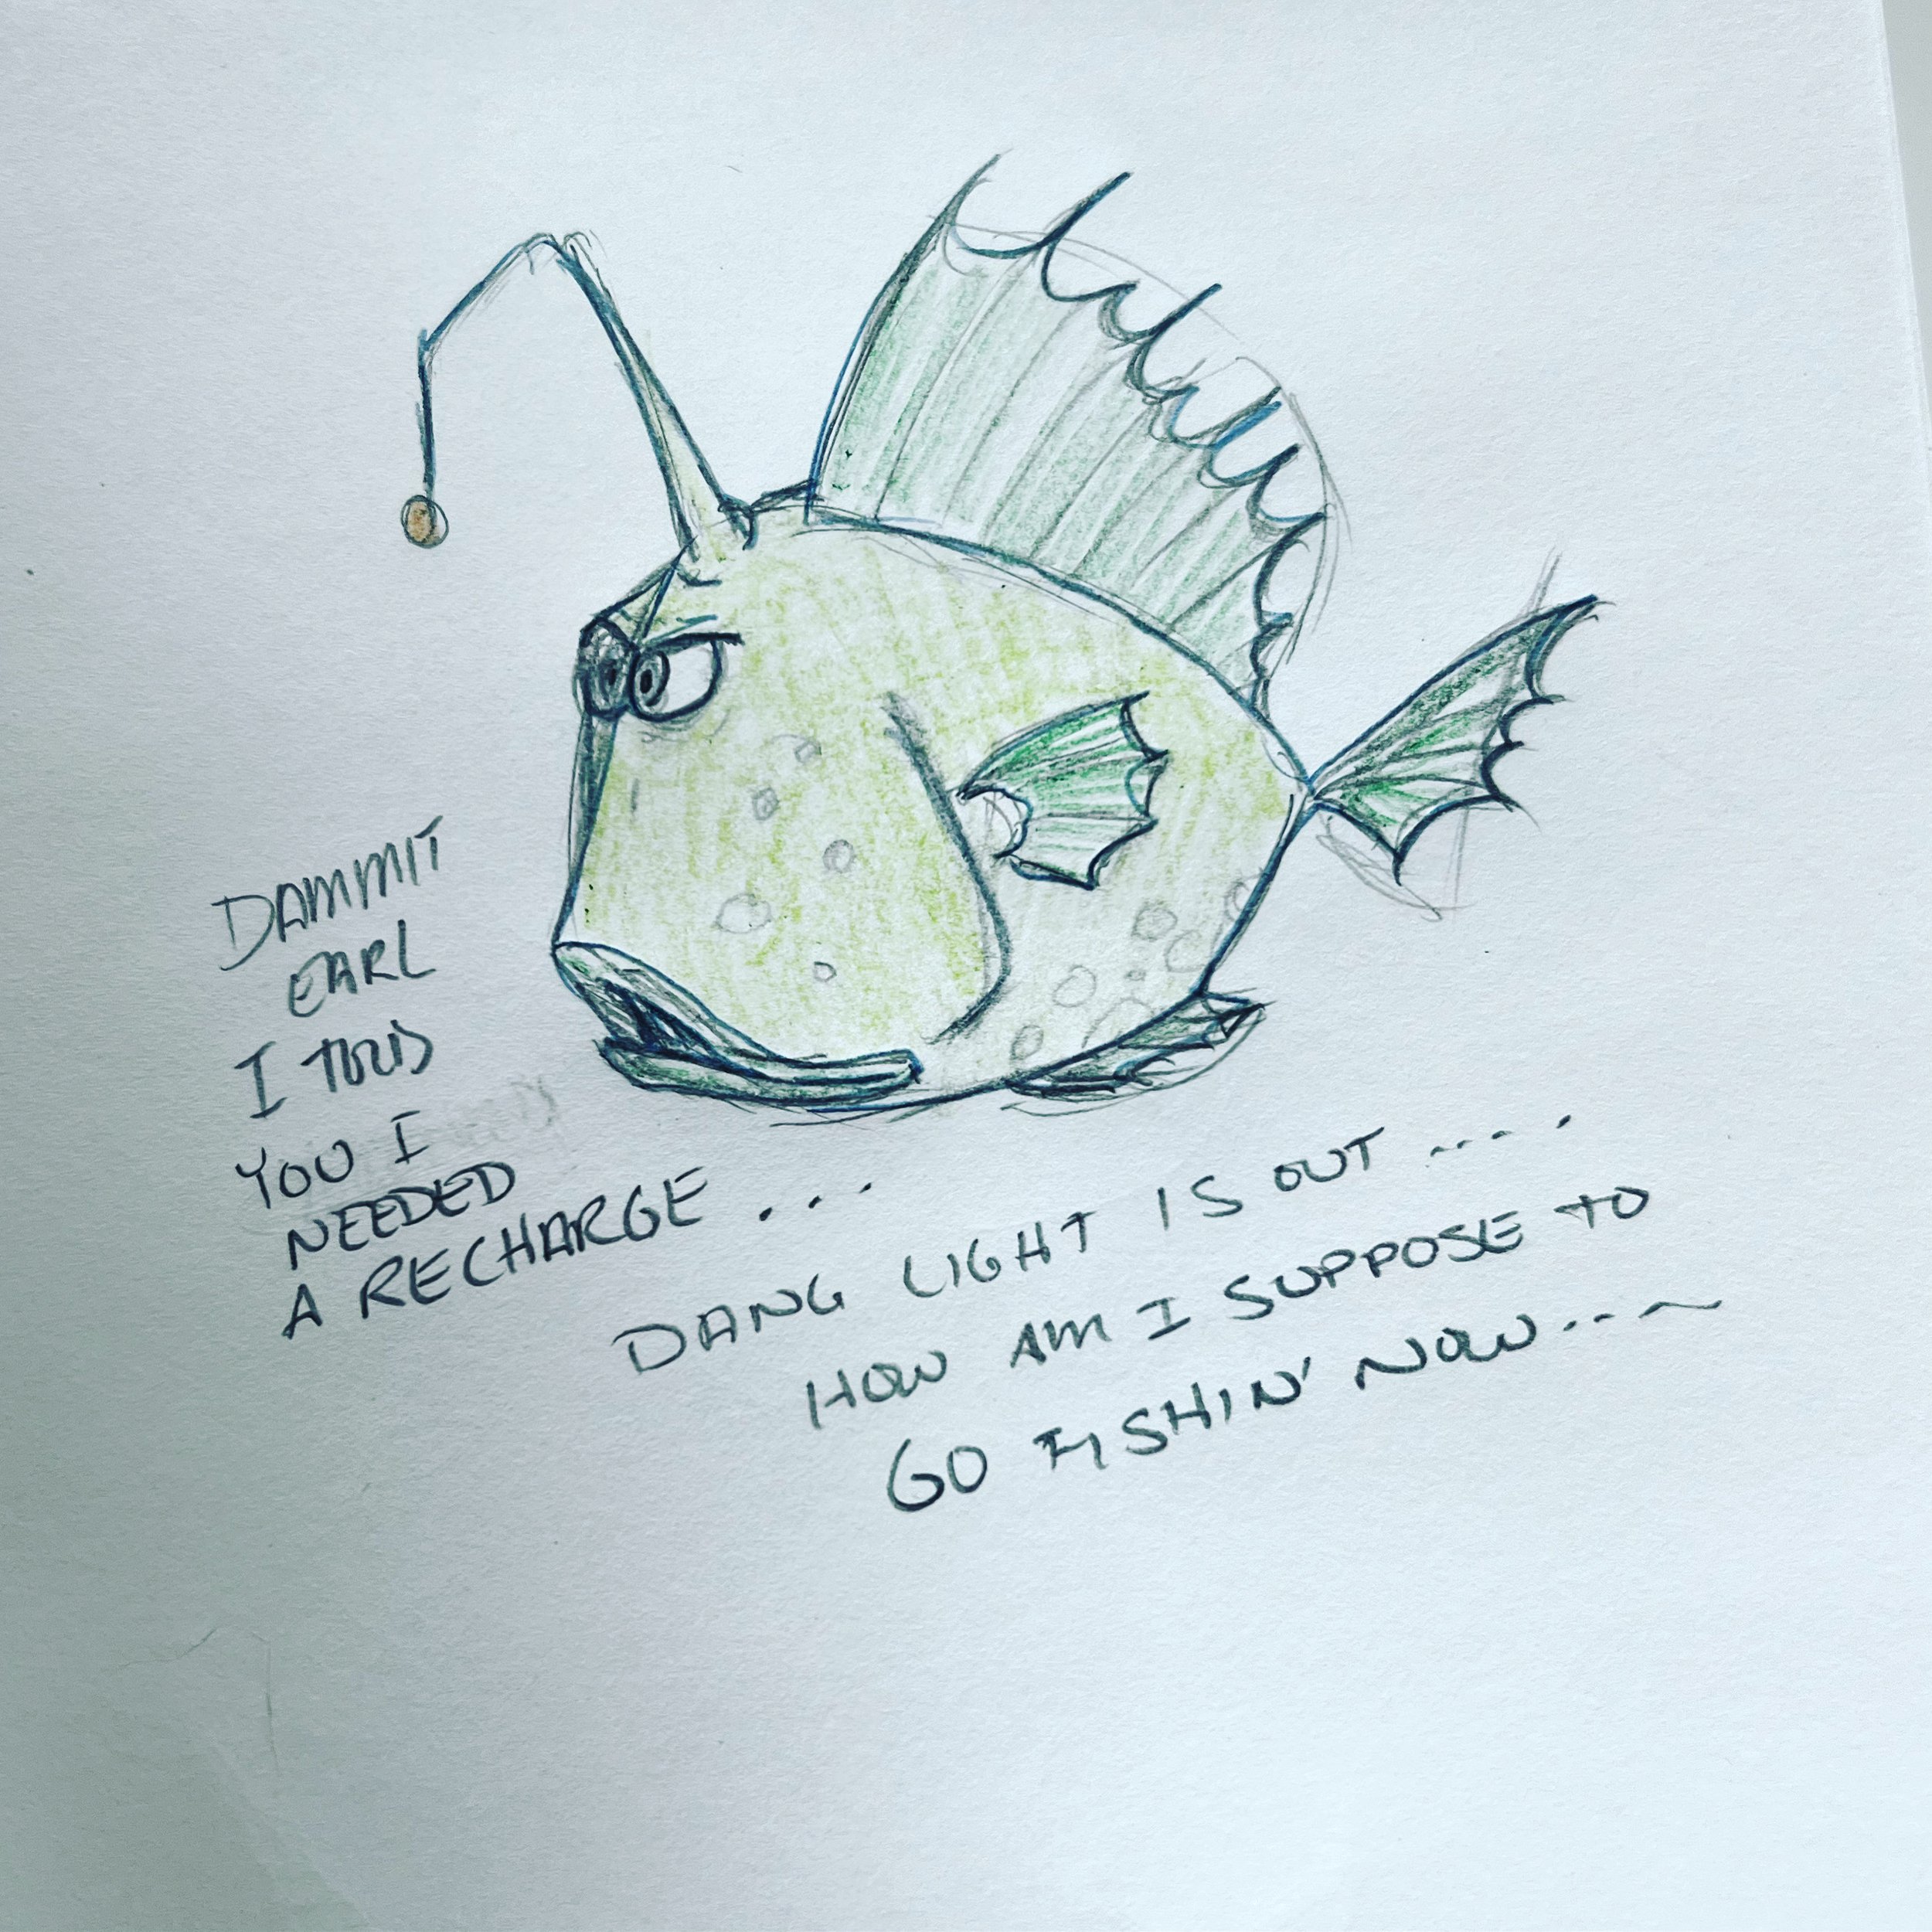 DAMMIT
EARL
I TOLD
YOU I
NEEDED
A RECHARGE...
DANG LIGHT IS OUT....
HOW AM I SUPPOSE TO
GO FISHIN' NOW...~